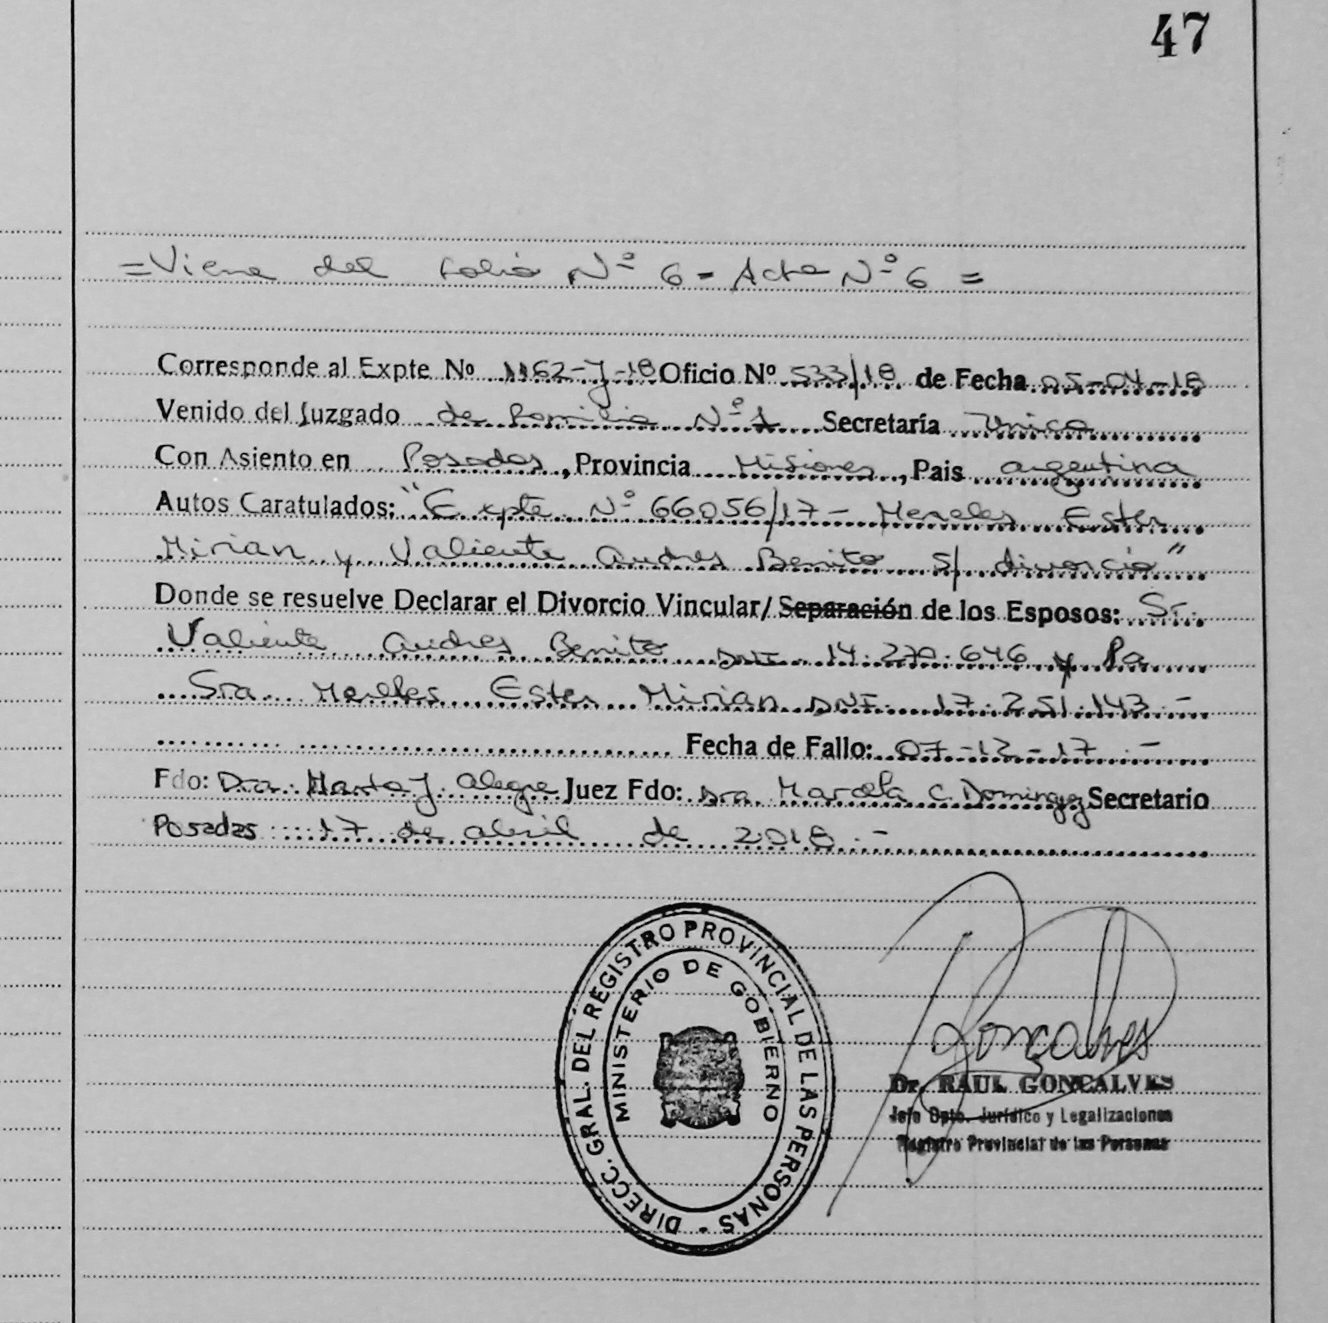 47
= Viene del folio Nº 6 - Acta Nº 6 =
Corresponde al Expte Nº 1162-J-18 Oficio Nº 533/18 de Fecha 05-04-18
Venido del Juzgado de Familia Nº 1 Secretaría Unica
Con Asiento en Posadas, Provincia Misiones, Pais argentina
Autos Caratulados: "Expte Nº 66056/17 - Mereles Ester
Mirian y Valiente Andres Benito S/ divorcio"
Donde se resuelve Declarar el Divorcio Vincular/ Separación de los Esposos: Sr.
Valiente Andres Benito DNI 14.270.646 y la
Sra Mereles Ester Mirian DNI 17.251.143.-
Fecha de Fallo: 07-12-17.-
Fdo: Dra. Marta J. Alegre Juez Fdo: Dra Marcela C. Dominguez Secretario
Posadas 17 de abril de 2018.-
DIRECC. GRAL. DEL REGISTRO PROVINCIAL DE LAS PERSONAS -
MINISTERIO DE GOBIERNO
Goncalves
Dr. RAUL GONCALVES
Jefe Dpto. Jurídico y Legalizaciones
Registro Provincial de las Personas